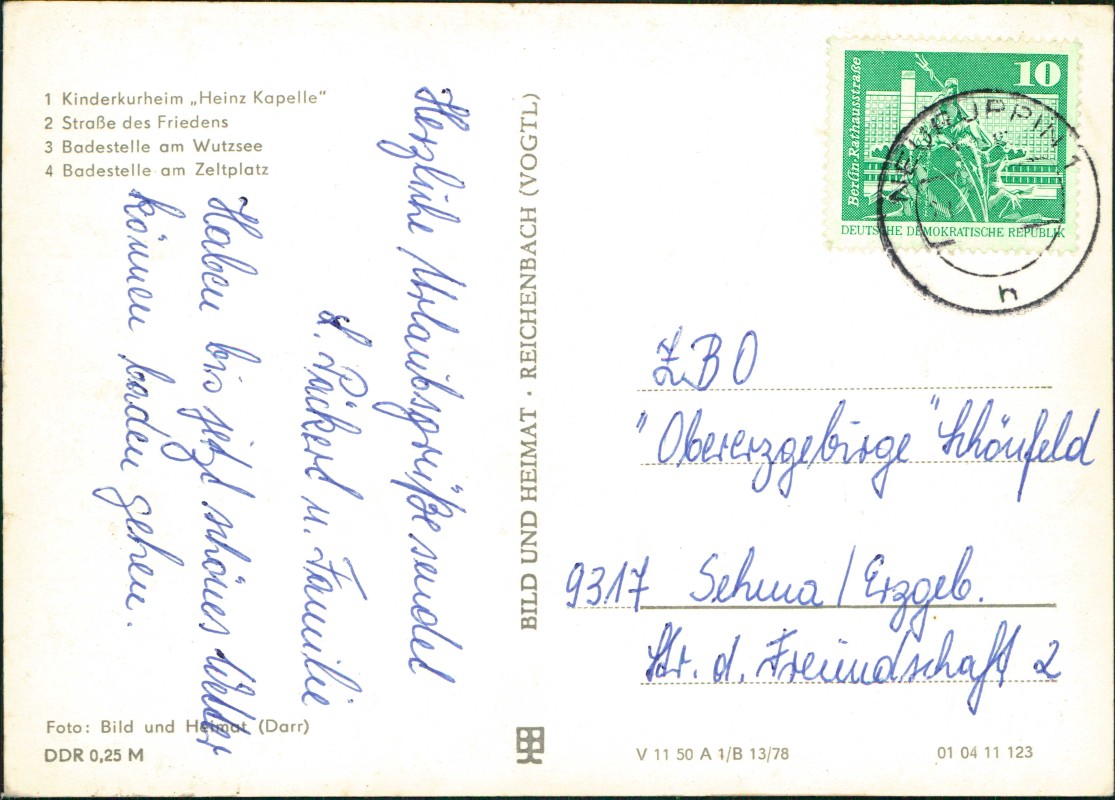 1 Kinderkurheim „Heinz Kapelle“
2 Straße des Friedens
3 Badestelle am Wutzsee
4 Badestelle am Zeltplatz
Herzliche Urlaubsgrüße sendet
u. Familie
Haben bis jetzt schönes Wetter
können baden gehen.
Foto: Bild und Heimat (Darr)
DDR 0,25 M
BILD UND HEIMAT · REICHENBACH (VOGTL)
10
Berlin-Rathausstraße
DEUTSCHE DEMOKRATISCHE REPUBLIK
NEURUPPIN 1
h
ZBO
"Obererzgebirge" Schönfeld
9317 Sehma/Erzgeb.
Str. d. Freundschaft 2
V 11 50 A 1/B 13/78
01 04 11 123